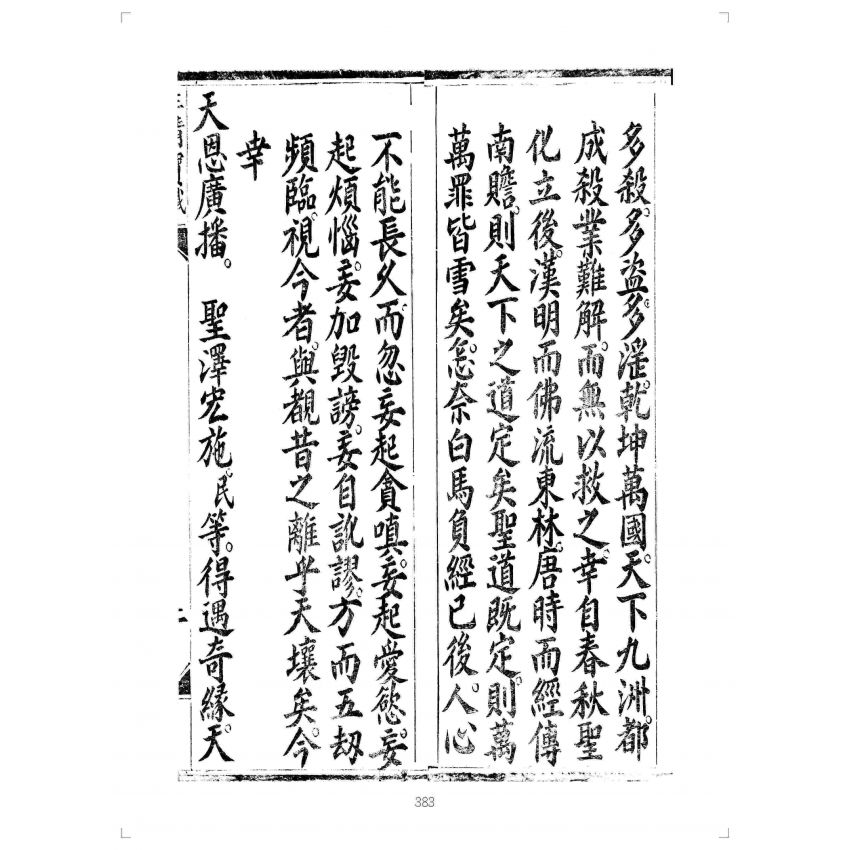 多殺。多盗。多滛。乾坤萬國。天下九洲。都
成殺業難解。而無以救之。幸自春秋聖
化立後。漢明而佛流東林。唐時而經傳
南贍。則天下之道定矣聖道既定。則萬
萬罪皆雪矣。怎奈白馬負經已後。人心
不能長久。而忽妄起貪嗔。妄起愛慾。妄
起煩惱。妄加毀謗。妄自訛謬。方而五刼
頻臨。視今者。與覩昔之離乎天壤矣。今
幸
天恩廣播。 聖澤宏施。民等。得遇奇緣。天
383